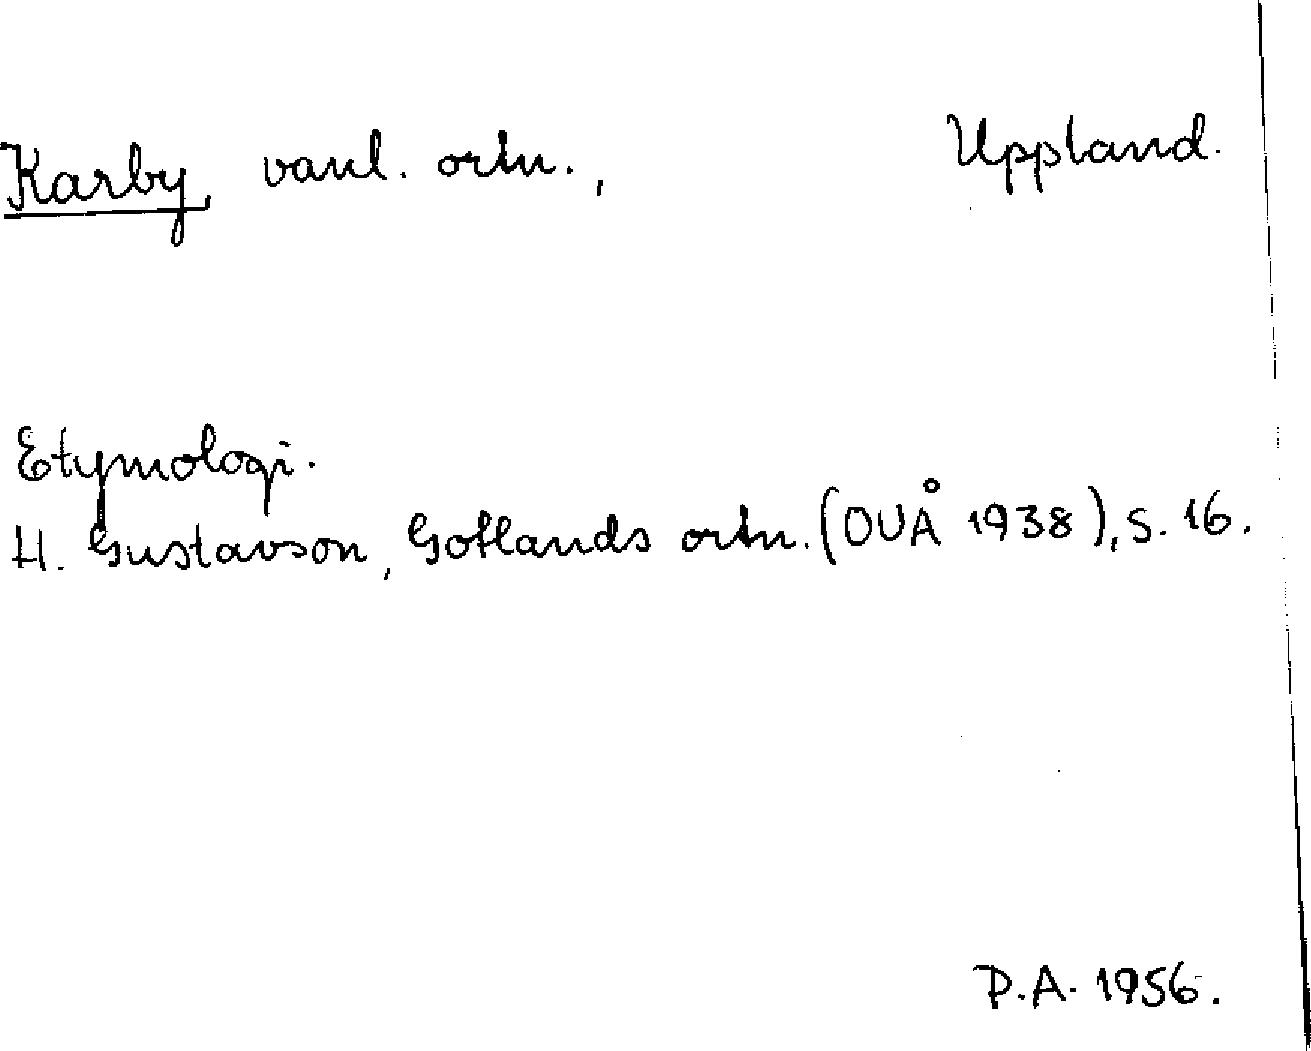 Karby, vanl. ortn., Uppland.
Etymologi.
H. Gustavson, Gotlands ortn. (OUÅ 1938), s. 16.
P.A. 1956.